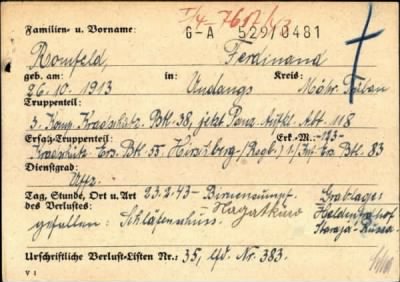 I/4-7617/43
Familien- u. Vorname: G-A 529/0481
Romfeld, Ferdinand
geb. am: in: Kreis:
26.10.1913 Undangs Mähr. Trübau
Truppenteil:
3. Komp. Kradschütz. Btl. 38, jetzt Panz. Aufkl. Abt. 118
Ersatz-Truppenteil Erk.-M.: -173-
Kradschütz. Ers. Btl. 55 Hirschberg/(Regb.) 1/Inf. Ers. Btl. 83
Dienstgrad
Uffz.
Tag, Stunde, Ort u. Art 23.2.43 - Grablage:
des Verlustes: Heldenfriedhof
gefallen: Schläfenschuss. Staraja-Russa
Urschriftliche Verlust-Listen Nr.: 35, lfd. Nr. 383.
V 1